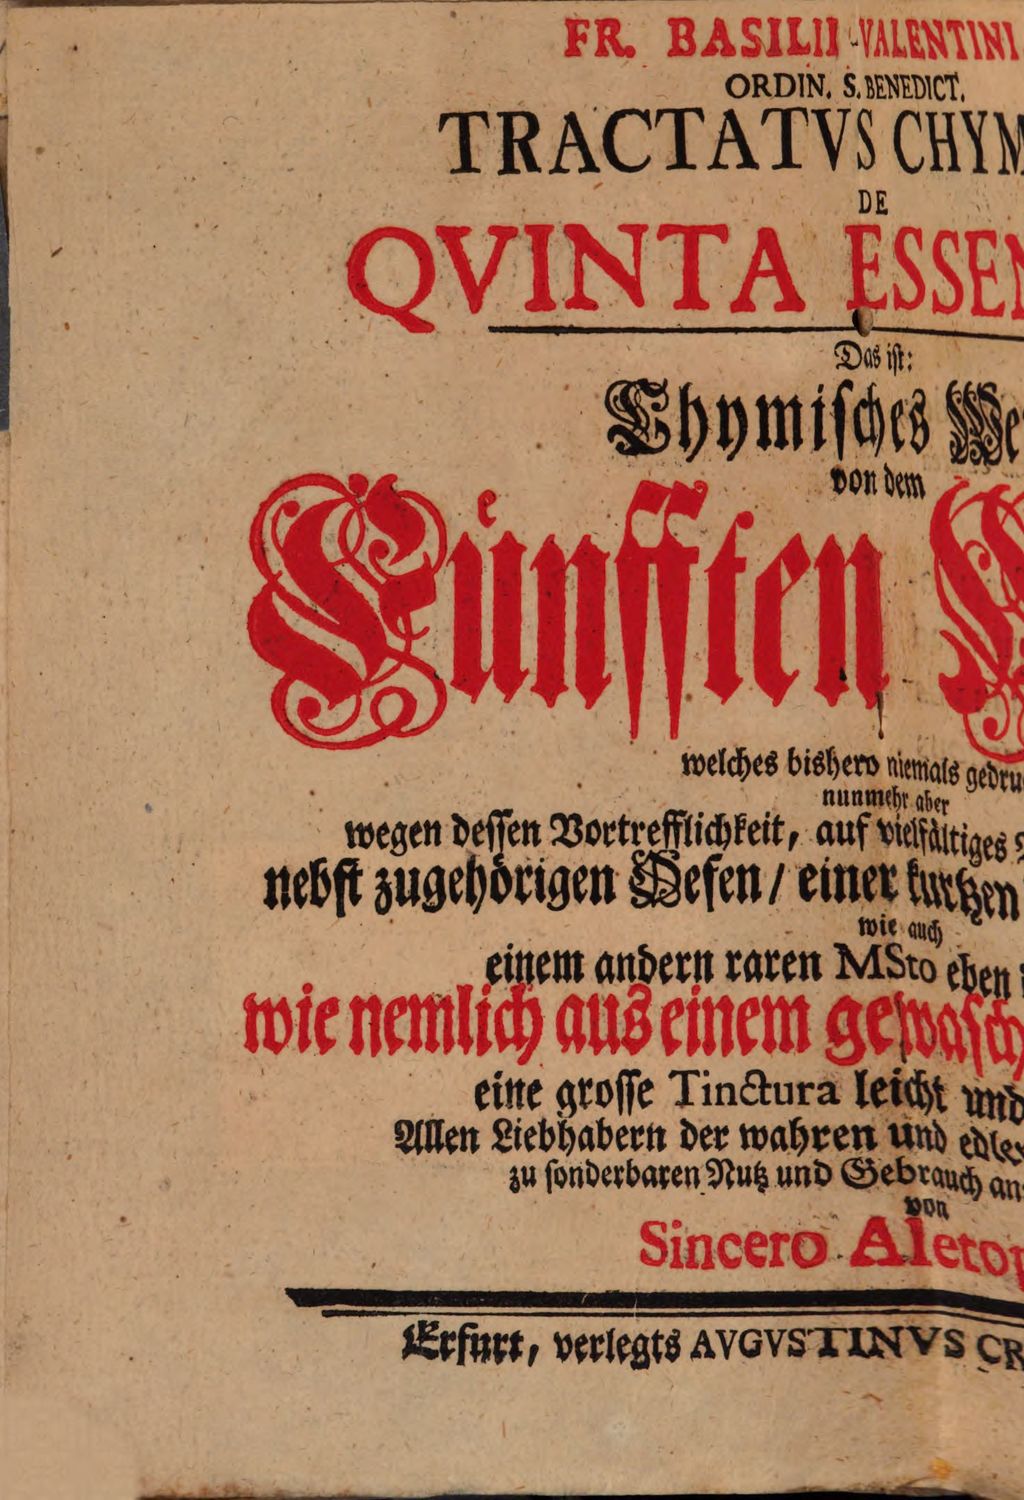 FR. BASILII VALENTINI
ORDIN. S. BENEDICT.
TRACTATVS CHYM
DE
QVINTA ESSEN
Das ist:
Chymisches We
von dem
Fünfften
welches bishero niemals gedru
nunmehr aber
wegen dessen Vortrefflichkeit, auf vielfältiges
nebst zugehörigen Oefen / einer kurtzen
wie auch
einem andern raren MSto eben
wie nemlich aus einem gewasch
eine grosse Tinctura leicht und
Allen Liebhabern der wahren und edle
zu sonderbaren Nutz und Gebrauch an
von
Sincero Aletop
Erfurt, verlegts AVGVSTINVS CR